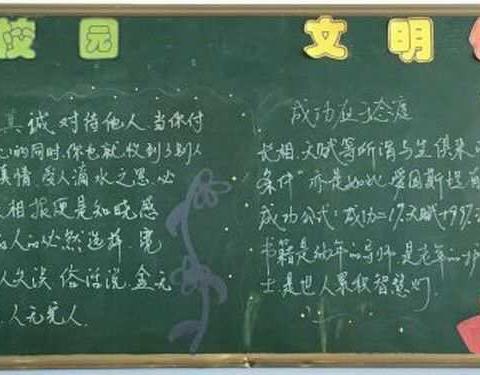 校园 文明
真诚对待他人.当你付
的同时,你也就收到了别人
真情.受人滴水之恩.必
相报更是知晓感
人的必然选择.宽
人文误.俗话说.金无
人无完人.
成功在于态度
长相.天赋等所谓与生俱来
条件"亦是如此.爱因斯坦
成功公式:成功=1%天赋+99%
书籍是幼年的导师.是老年的护
士.是世人累积智慧的灯.